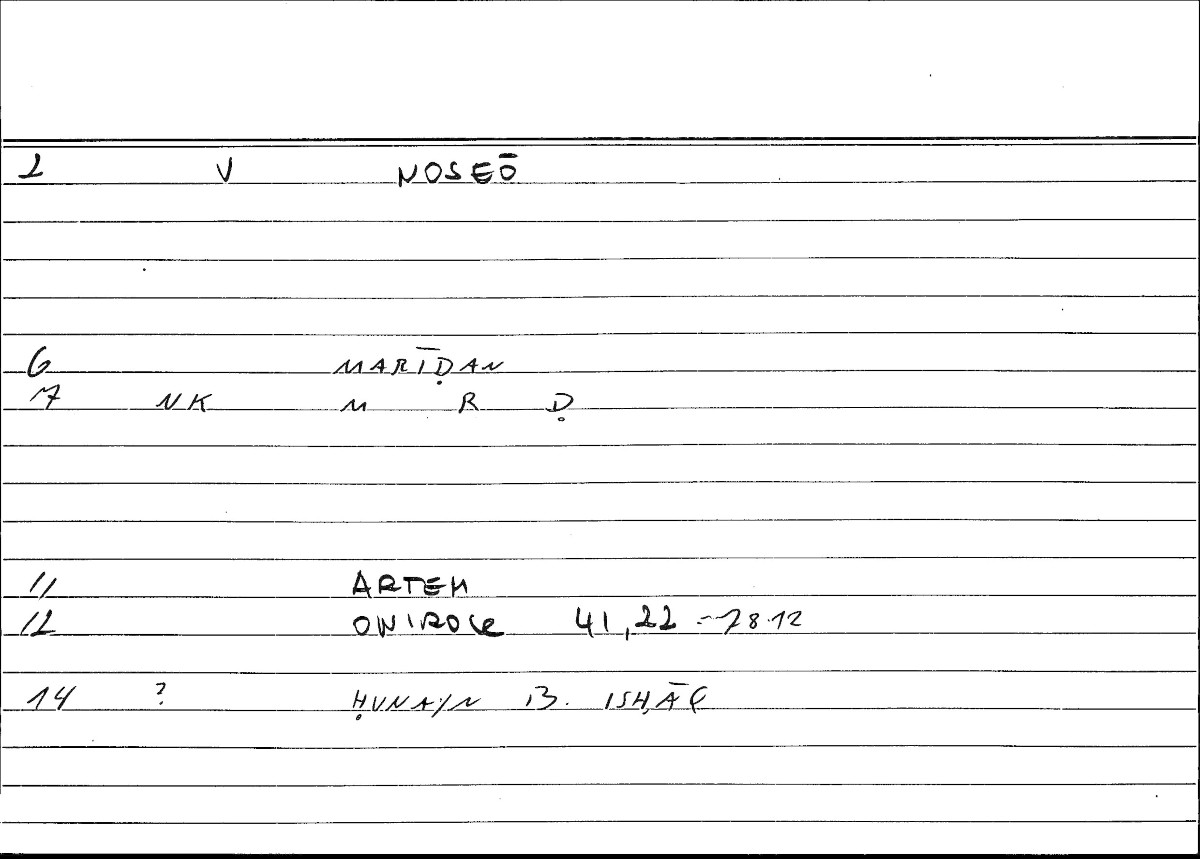 2 V NOSEŌ
6 MARĪḌAN
7 NK M R Ḍ
11 ARTEM
12 ONIROCR 41,22 = 78.12
14 ? ḤUNAYN B. ISḤĀQ